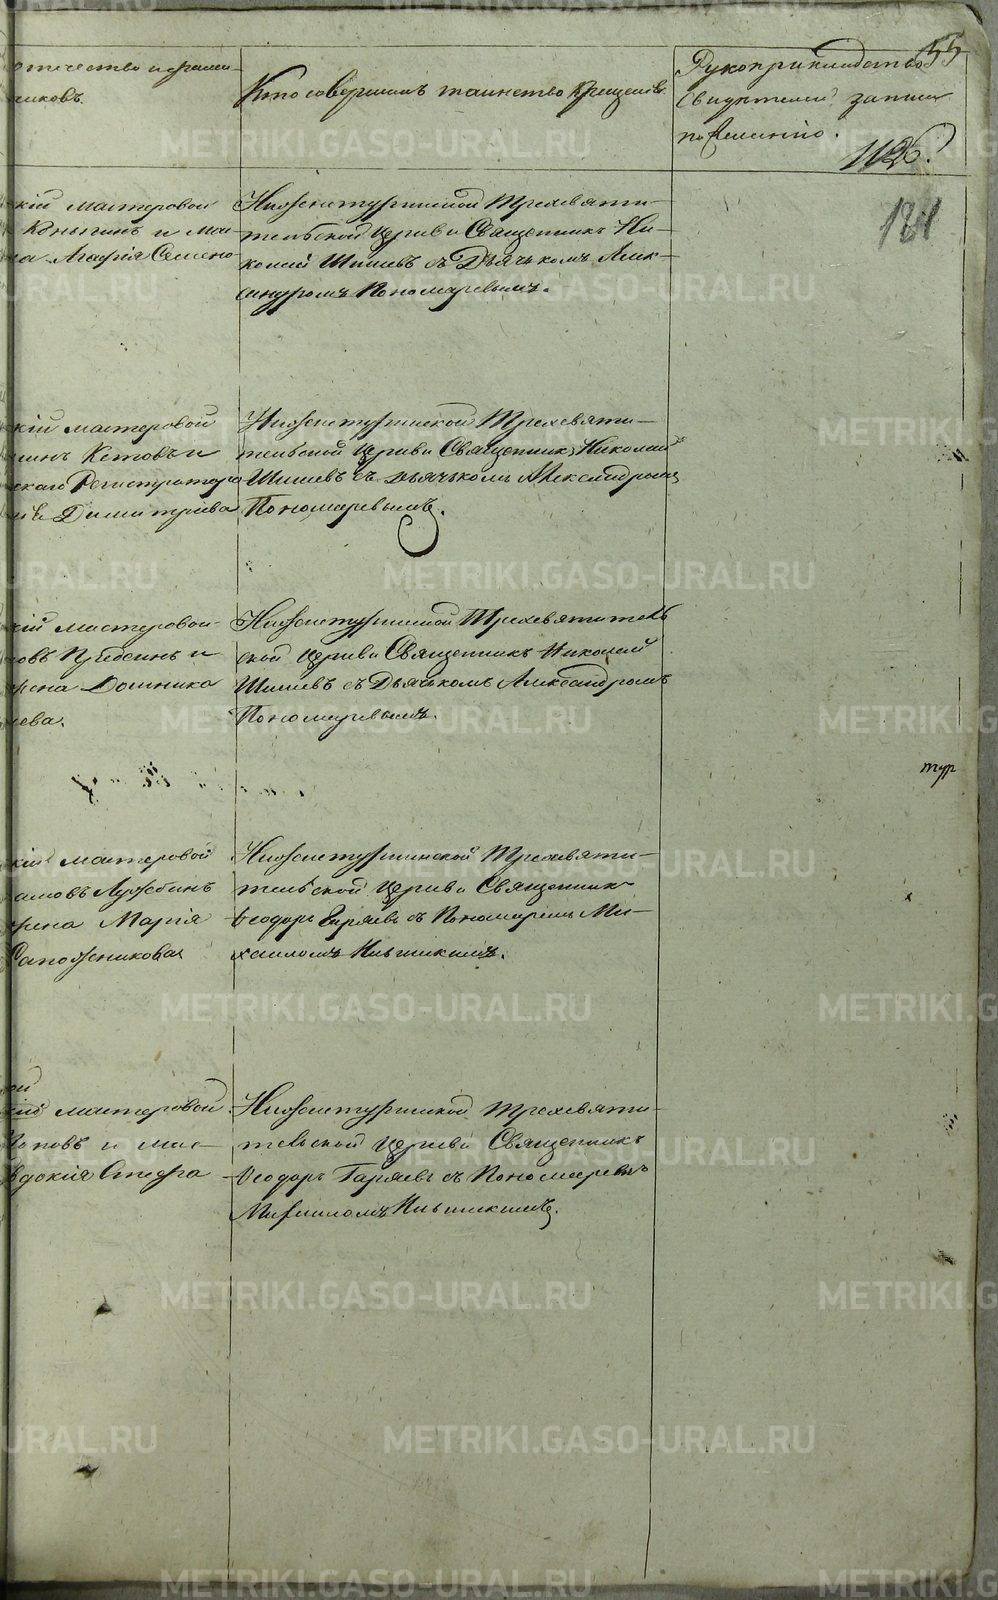 отчество и фами-
никовъ.
Кто совершалъ таинство крещенія.
Рукоприкладство
свидѣтелей записи
по желанію.
55
126.
121
кій мастеровой
Князинъ и
Агафія Семено
Нижнетуринской Трехсвяти-
тельской Церкви Священникъ Ни-
колай Шишевъ съ Дьячкомъ Алек-
сандромъ Пономаревымъ.
кій мастеровой
Кетовъ и
скаго Регистратора
Димитріева
Нижнетуринской Трехсвяти-
тельской Церкви Священникъ Николай
Шишевъ съ Дьячкомъ Александромъ
Пономаревымъ.
кій мастеровой
и
жена Домника
ева.
Нижнетуринской Трехсвятитель
ской Церкви Священникъ Николай
Шишевъ съ Дьячкомъ Александромъ
Пономаревымъ.
тур
кій мастеровой
амовъ Лужбинъ
жена Марія
Сапожникова
Нижнетуринской Трехсвяти-
тельской Церкви Священникъ
Ѳеодоръ Гаряевъ съ Пономаремъ Ми-
хаиломъ
кій мастеровой
Поповъ и
вдокія Стефа
Нижнетуринской Трехсвяти-
тельской Церкви Священникъ
Ѳеодоръ Гаряевъ съ Пономаремъ
Михаиломъ
METRIKI.GASO-URAL.RU